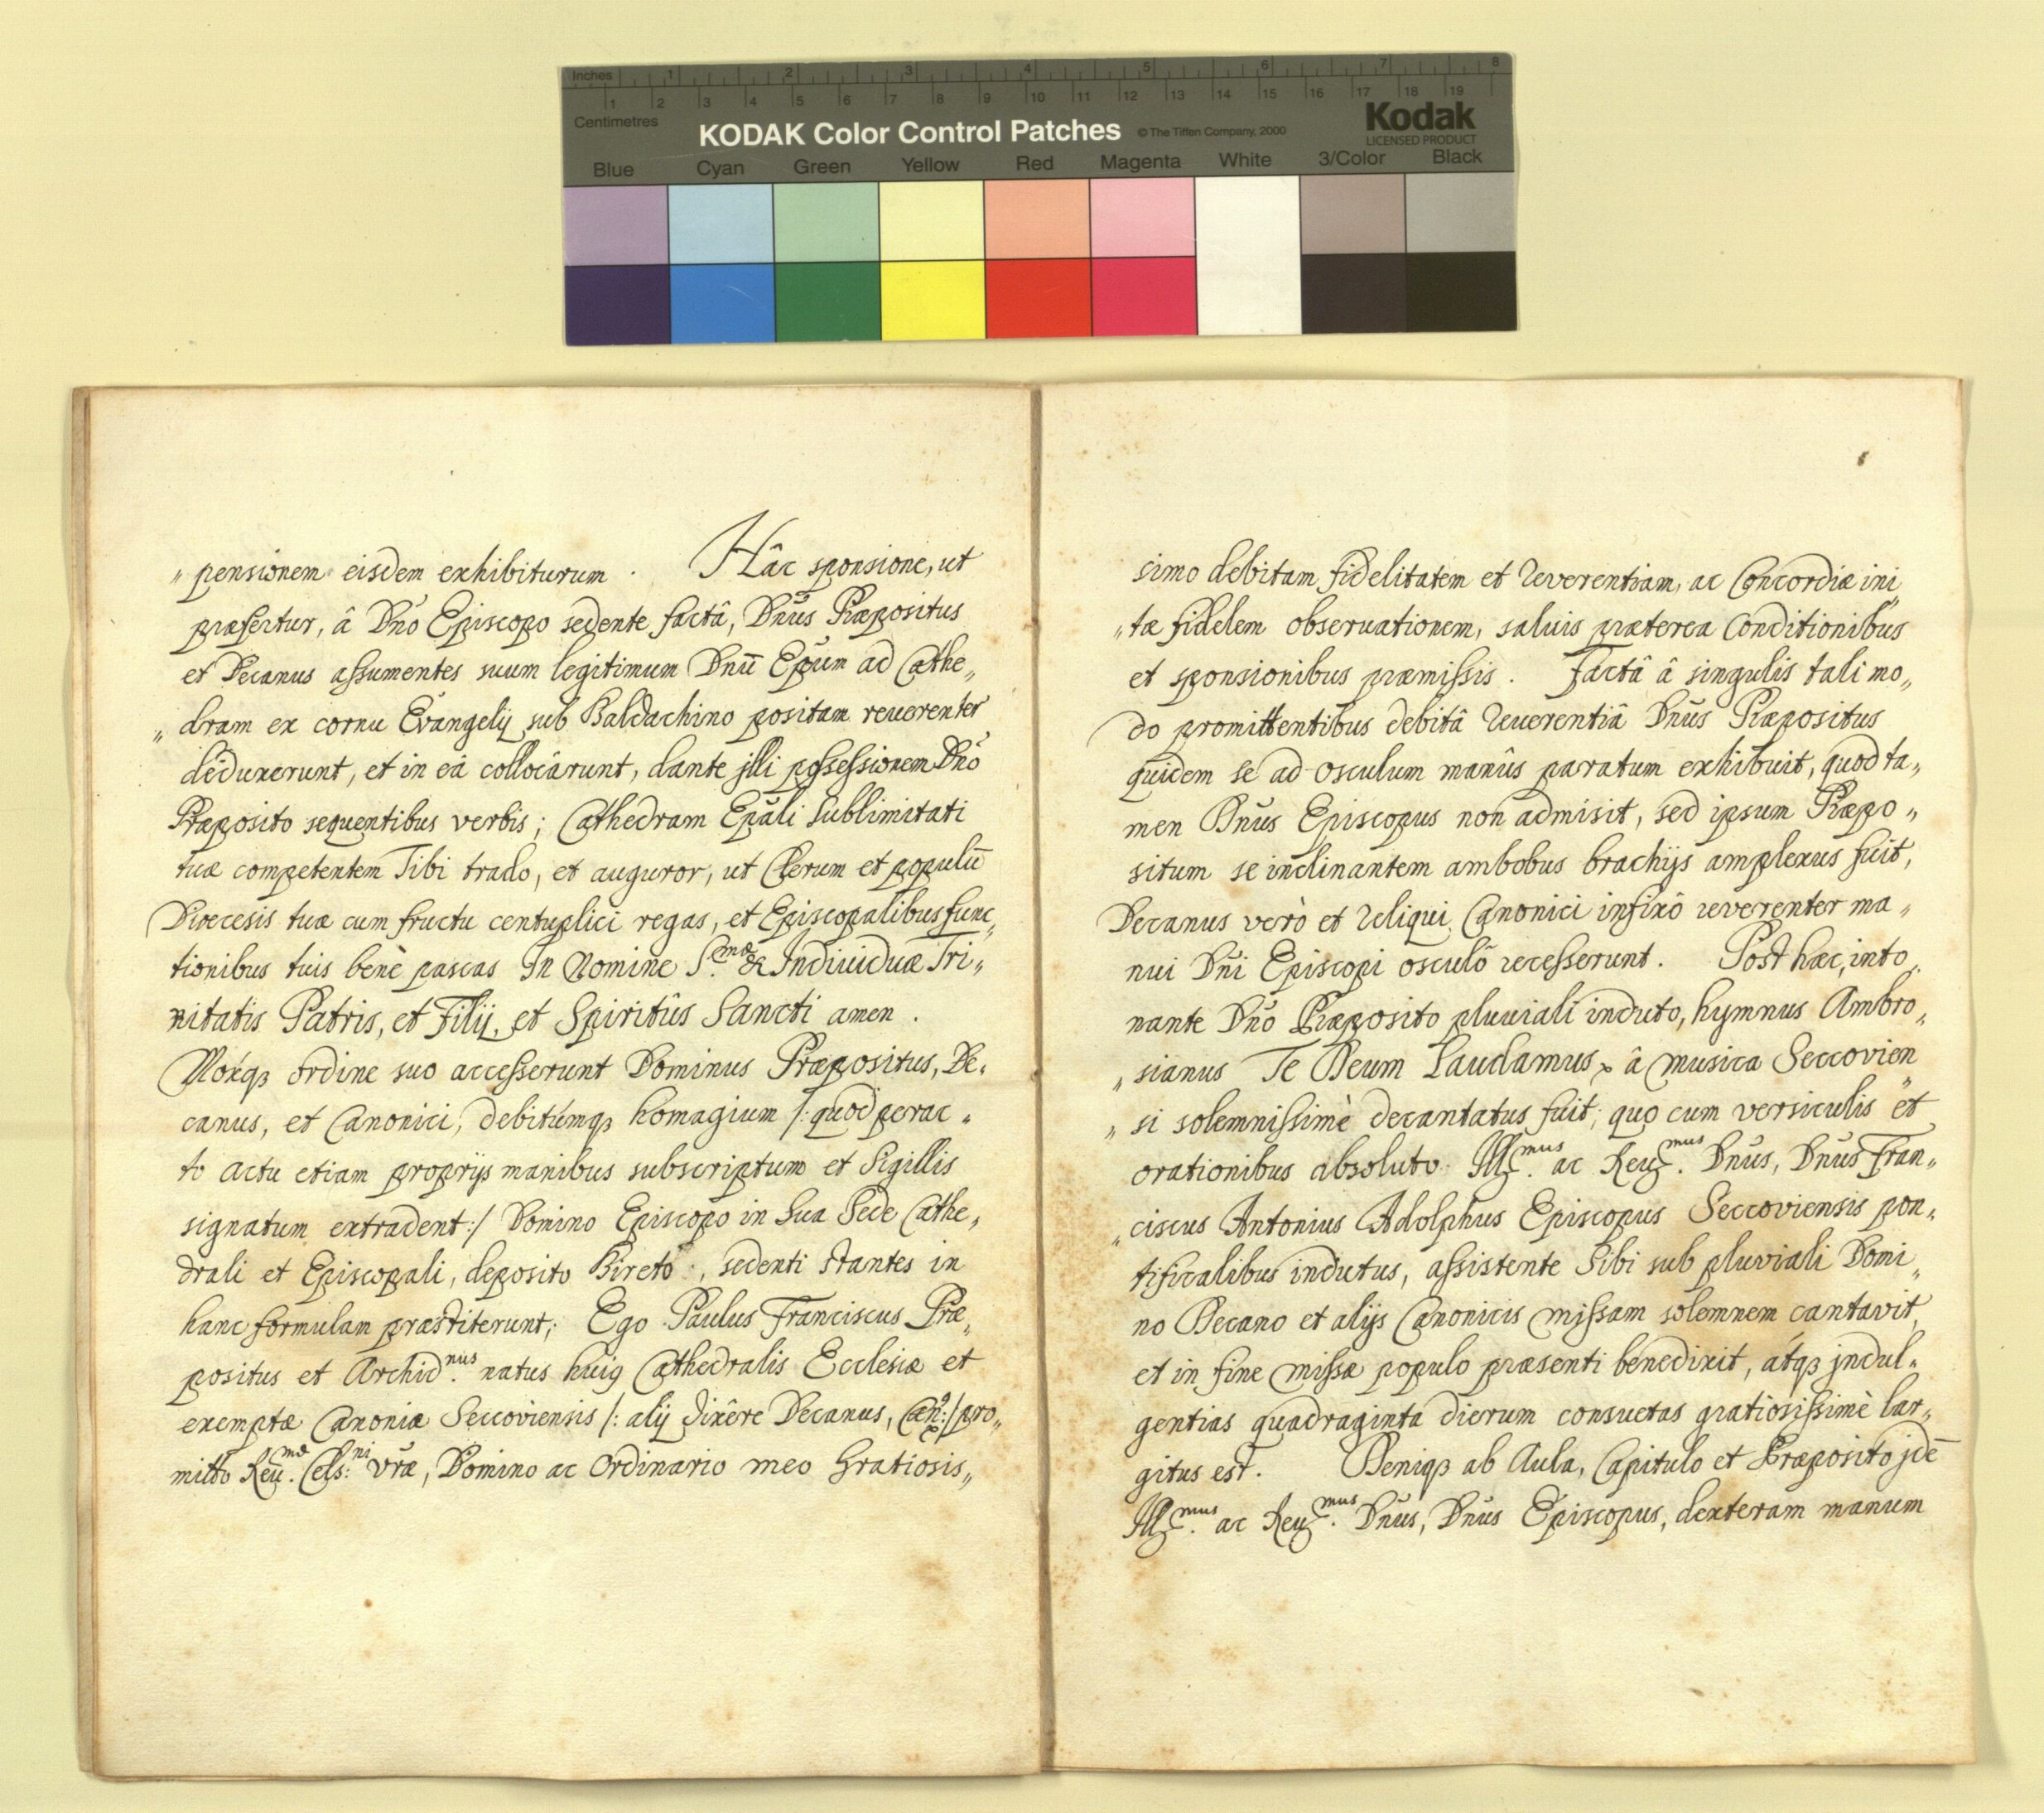 Inches 1 2 3 4 5 6 7 8
1 2 3 4 5 6 7 8 9 10 11 12 13 14 15 16 17 18 19
Centimetres
KODAK Color Control Patches © The Tiffen Company, 2000 Kodak
LICENSED PRODUCT
Blue Cyan Green Yellow Red Magenta White 3/Color Black
„ pensionem eisdem exhibiturum . Hâc sponsione, ut
præfertur, â Dn̄o Episcopo sedente factâ, Dn̄us Præpositus
et Decanus assumentes suum legitimum Dnū Ep̄um ad Cathe„
„ dram ex cornu Evangelij sub Baldachino positam reuerenter
deduxerunt, et in eâ collocârunt, dante jlli possessionem Dn̄o
Præposito sequentibus verbis; Cathedram Ep̄ali Sublimitati
tuæ competentem Tibi trado, et auguror, ut Clerum et populū
Diœcesis tuæ cum fructu centuplici regas, et Episcopalibus func„
tionibus tuis benè pascas In Nomine S.mæ & Indiuiduæ Tri„
nitatis Patris, et Filij, et Spiritûs Sancti amen .
Móxqȝ ordine suo accesserunt Dominus Præpositus, De„
canus, et Canonici, debitúmqȝ homagium /: quod perac„
to actu etiam proprijs manibus subscriptum et Sigillis
signatum extradent :/ Domino Episcopo in Sua Sede Cathe„
drali et Episcopali, deposito Bireto , sedenti stantes in
hanc formulam præstiterunt; Ego Paulus Franciscus Præ„
positus et Archid.nus natus huiꝯ Cathedralis Ecclesiæ et
exemptæ Canoniæ Seccoviensis /: alij dixêre Decanus, Can̄: / pro„
mitto Reu.mæ Cels:ni vr̄æ, Domino ac Ordinario meo Gratiosis„
simo debitam fidelitatem et reverentiam, ac Concordiæ ini„
„ tæ fidelem obseruationem, saluis præterea Conditionibus
et sponsionibus præmissis . Factâ â singulis tali mo„
do promittentibus debitâ reuerentiâ Dn̄us Præpositus
quidem se ad osculum manûs paratum exhibuit, quod ta„
men Dn̄us Episcopus non admisit, sed ipsum Præpo„
situm se inclinantem ambobus brachijs amplexus fuit,
Decanus verò et reliqui Canonici infixô reverenter ma„
nui Dn̄i Episcopi osculô recesserunt . Post hæc, into„
nante Dn̄o Præposito pluuiali induto, hymnus Ambro„
„ sianus Te Deum Laudamus â musica Seccovien„
„ si solemnissimè decantatus fuit; quo cum versiculis et
orationibus absoluto Ill.mus ac Reu.mus Dn̄us, Dn̄us Fran„
„ ciscus Antonius Adolphus Episcopus Seccoviensis pon„
tificalibus indutus, assistente Sibi sub pluviali Domi„
no Decano et alijs Canonicis missam solemnem cantavit,
et in fine missæ populo præsenti benedixit, átqȝ jndul„
gentias quadraginta dierum consuetas gratiosissimè lar„
gitus est . Deniqȝ ab Aula, Capitulo et Præposito jdē
Ill.mus ac Reu.mus Dn̄us, Dn̄us Episcopus, dexteram manum